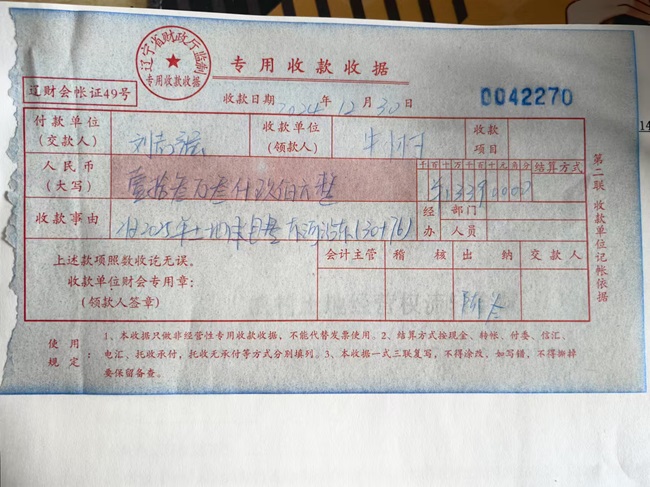 辽宁省财政厅监制
专用收款收据
专用收款收据
辽财会帐证49号
收款日期 2024 年 12 月 30 日
0042270
付款单位
(交款人)
收款单位
(领款人)
牛 村
收款
项目
人民币
(大写)
壹拾叁万叁仟玖佰元整
千 百 十 万 千 百 十 元 角 分
结算方式
133900.00
收款事由
经 部门
办 人员
上述款项照数收讫无误。
收款单位财会专用章:
(领款人签章)
会计主管
稽 核
出 纳
交 款 人
第二联 收款单位记帐依据
使 用
规 定:
1、本收据只做非经营性专用收款收据,不能代替发票使用。2、结算方式按现金、转帐、付委、信汇、
电汇、托收承付,托收无承付等方式分别填列。3、本收据一式三联复写,不得涂改,如写错,不得撕掉
要保留备查。
14